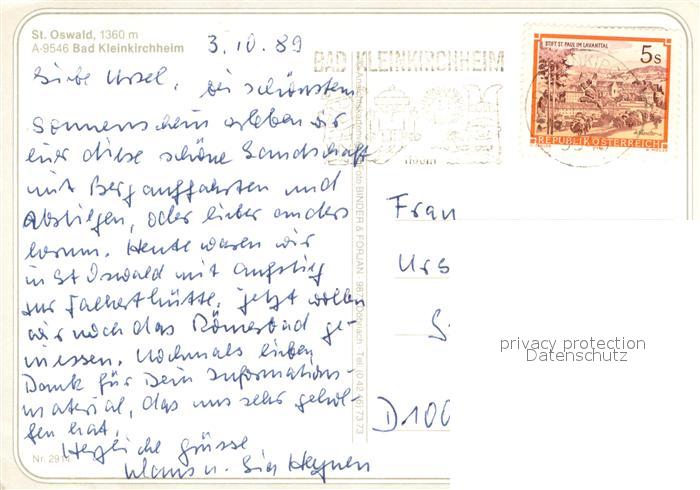 St. Oswald, 1360 m
A-9546 Bad Kleinkirchheim
3.10.89
Liebe Ursel, bei schönstem
Sonnenschein erleben wir
hier diese schöne Landschaft
mit Bergauffahrten und
Abstiegen, oder lieber anders
herum. Heute waren wir
in St Oswald mit Aufstieg
zur Falkerthütte, jetzt wollen
wir noch das Römerbad ge-
niessen. Nochmals lieben
Dank für Dein Informations-
material, das uns sehr gehol-
fen hat.
Herzliche Grüsse
Klaus u.
Nr. 2914
BAD KLEINKIRCHHEIM
BINDER & FORJAN
STIFT ST. PAUL IM LAVANTTAL
5s
REPUBLIK ÖSTERREICH
Frau
Urs
D100
privacy protection
Datenschutz